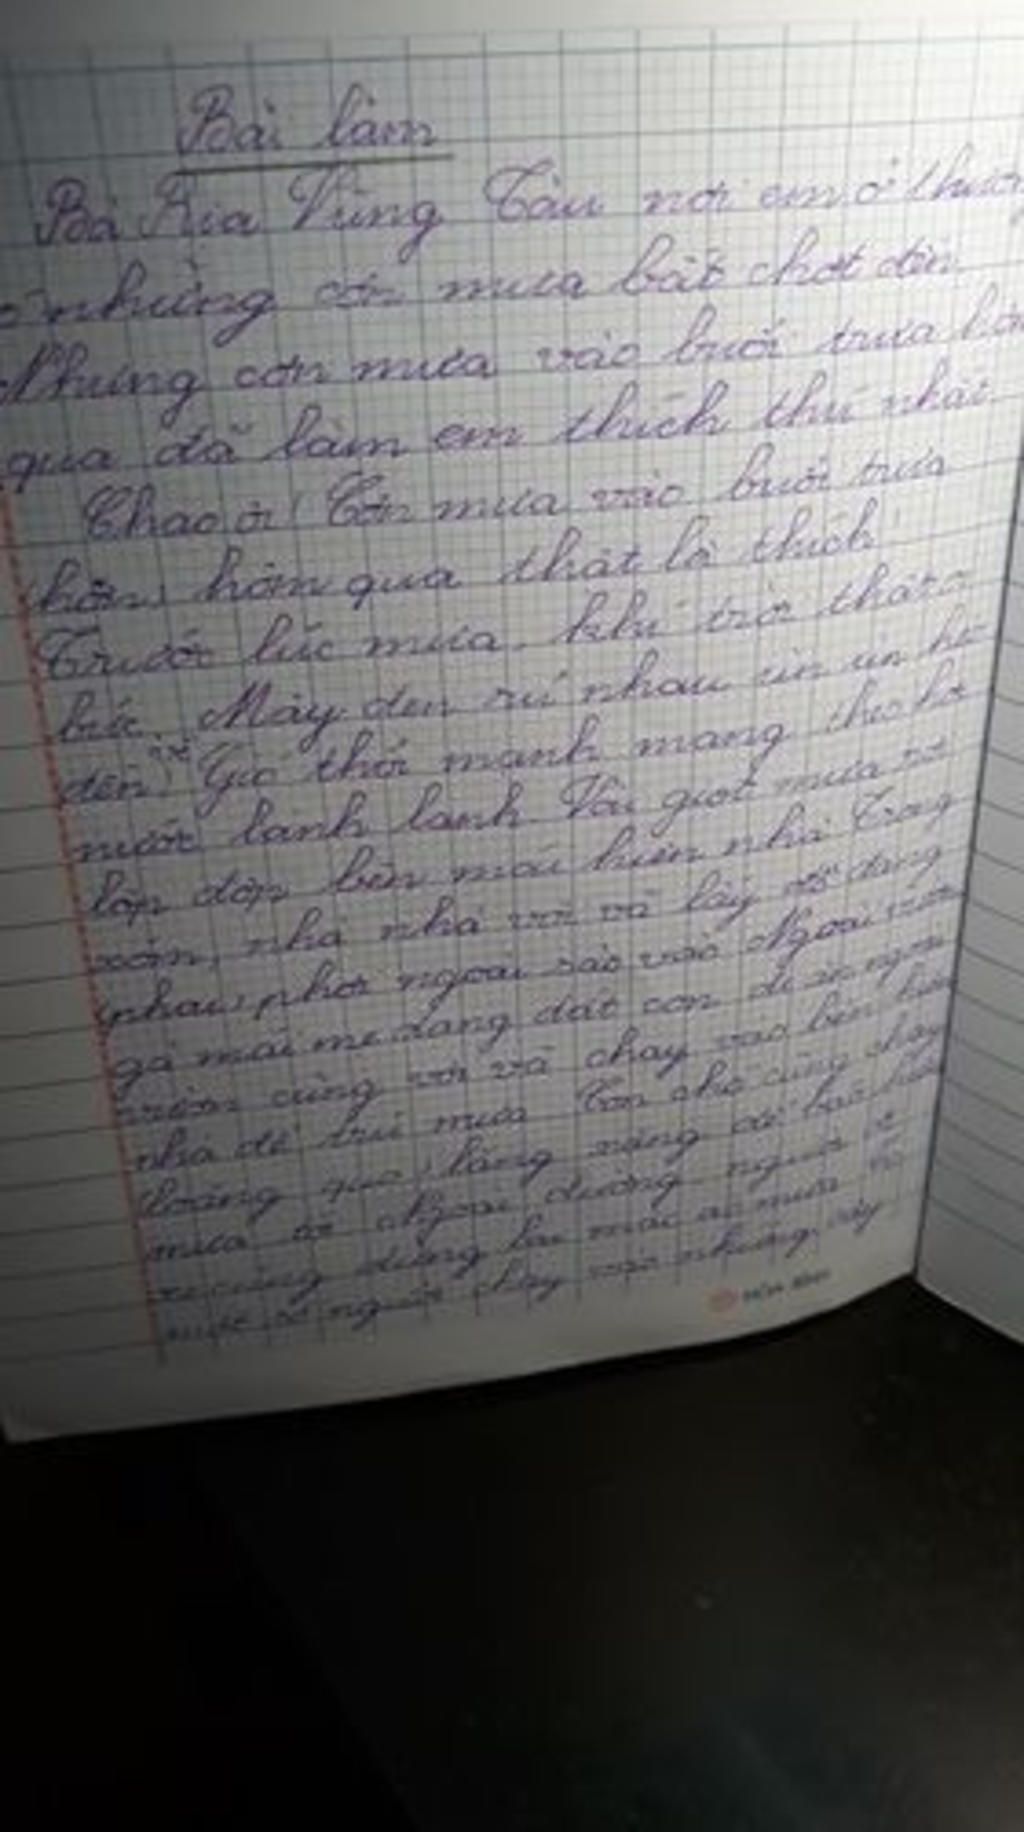 Bài làm
Bà Rịa Vũng Tàu nơi em ở
những cơn mưa bất chợt đến
Nhưng cơn mưa vào buổi trưa
qua đã làm em thích thú nhất
Chao ơi! Cơn mưa vào buổi trưa
hôm hôm qua thật là thích
Trước lúc mưa, khí trời thật
bức. Mây đen rủ nhau ùn ùn kéo
đến. Gió thổi mạnh mang theo hơi
nước lành lạnh. Vài giọt mưa rơi
lộp độp bên mái hiên nhà. Trong
xóm, nhà nhà vội vã lấy đồ đang
phơi ngoài sào vào. Ngoài vườn
gà mái mẹ đang dắt con đi ăn ngoài
vườn cũng vội vã chạy vào bên hiên
nhà để trú mưa. Con chó cũng chạy
loăng quăng
mưa ơi. Ngoài đường, người
dừng lại mặc áo mưa
người chạy vào những